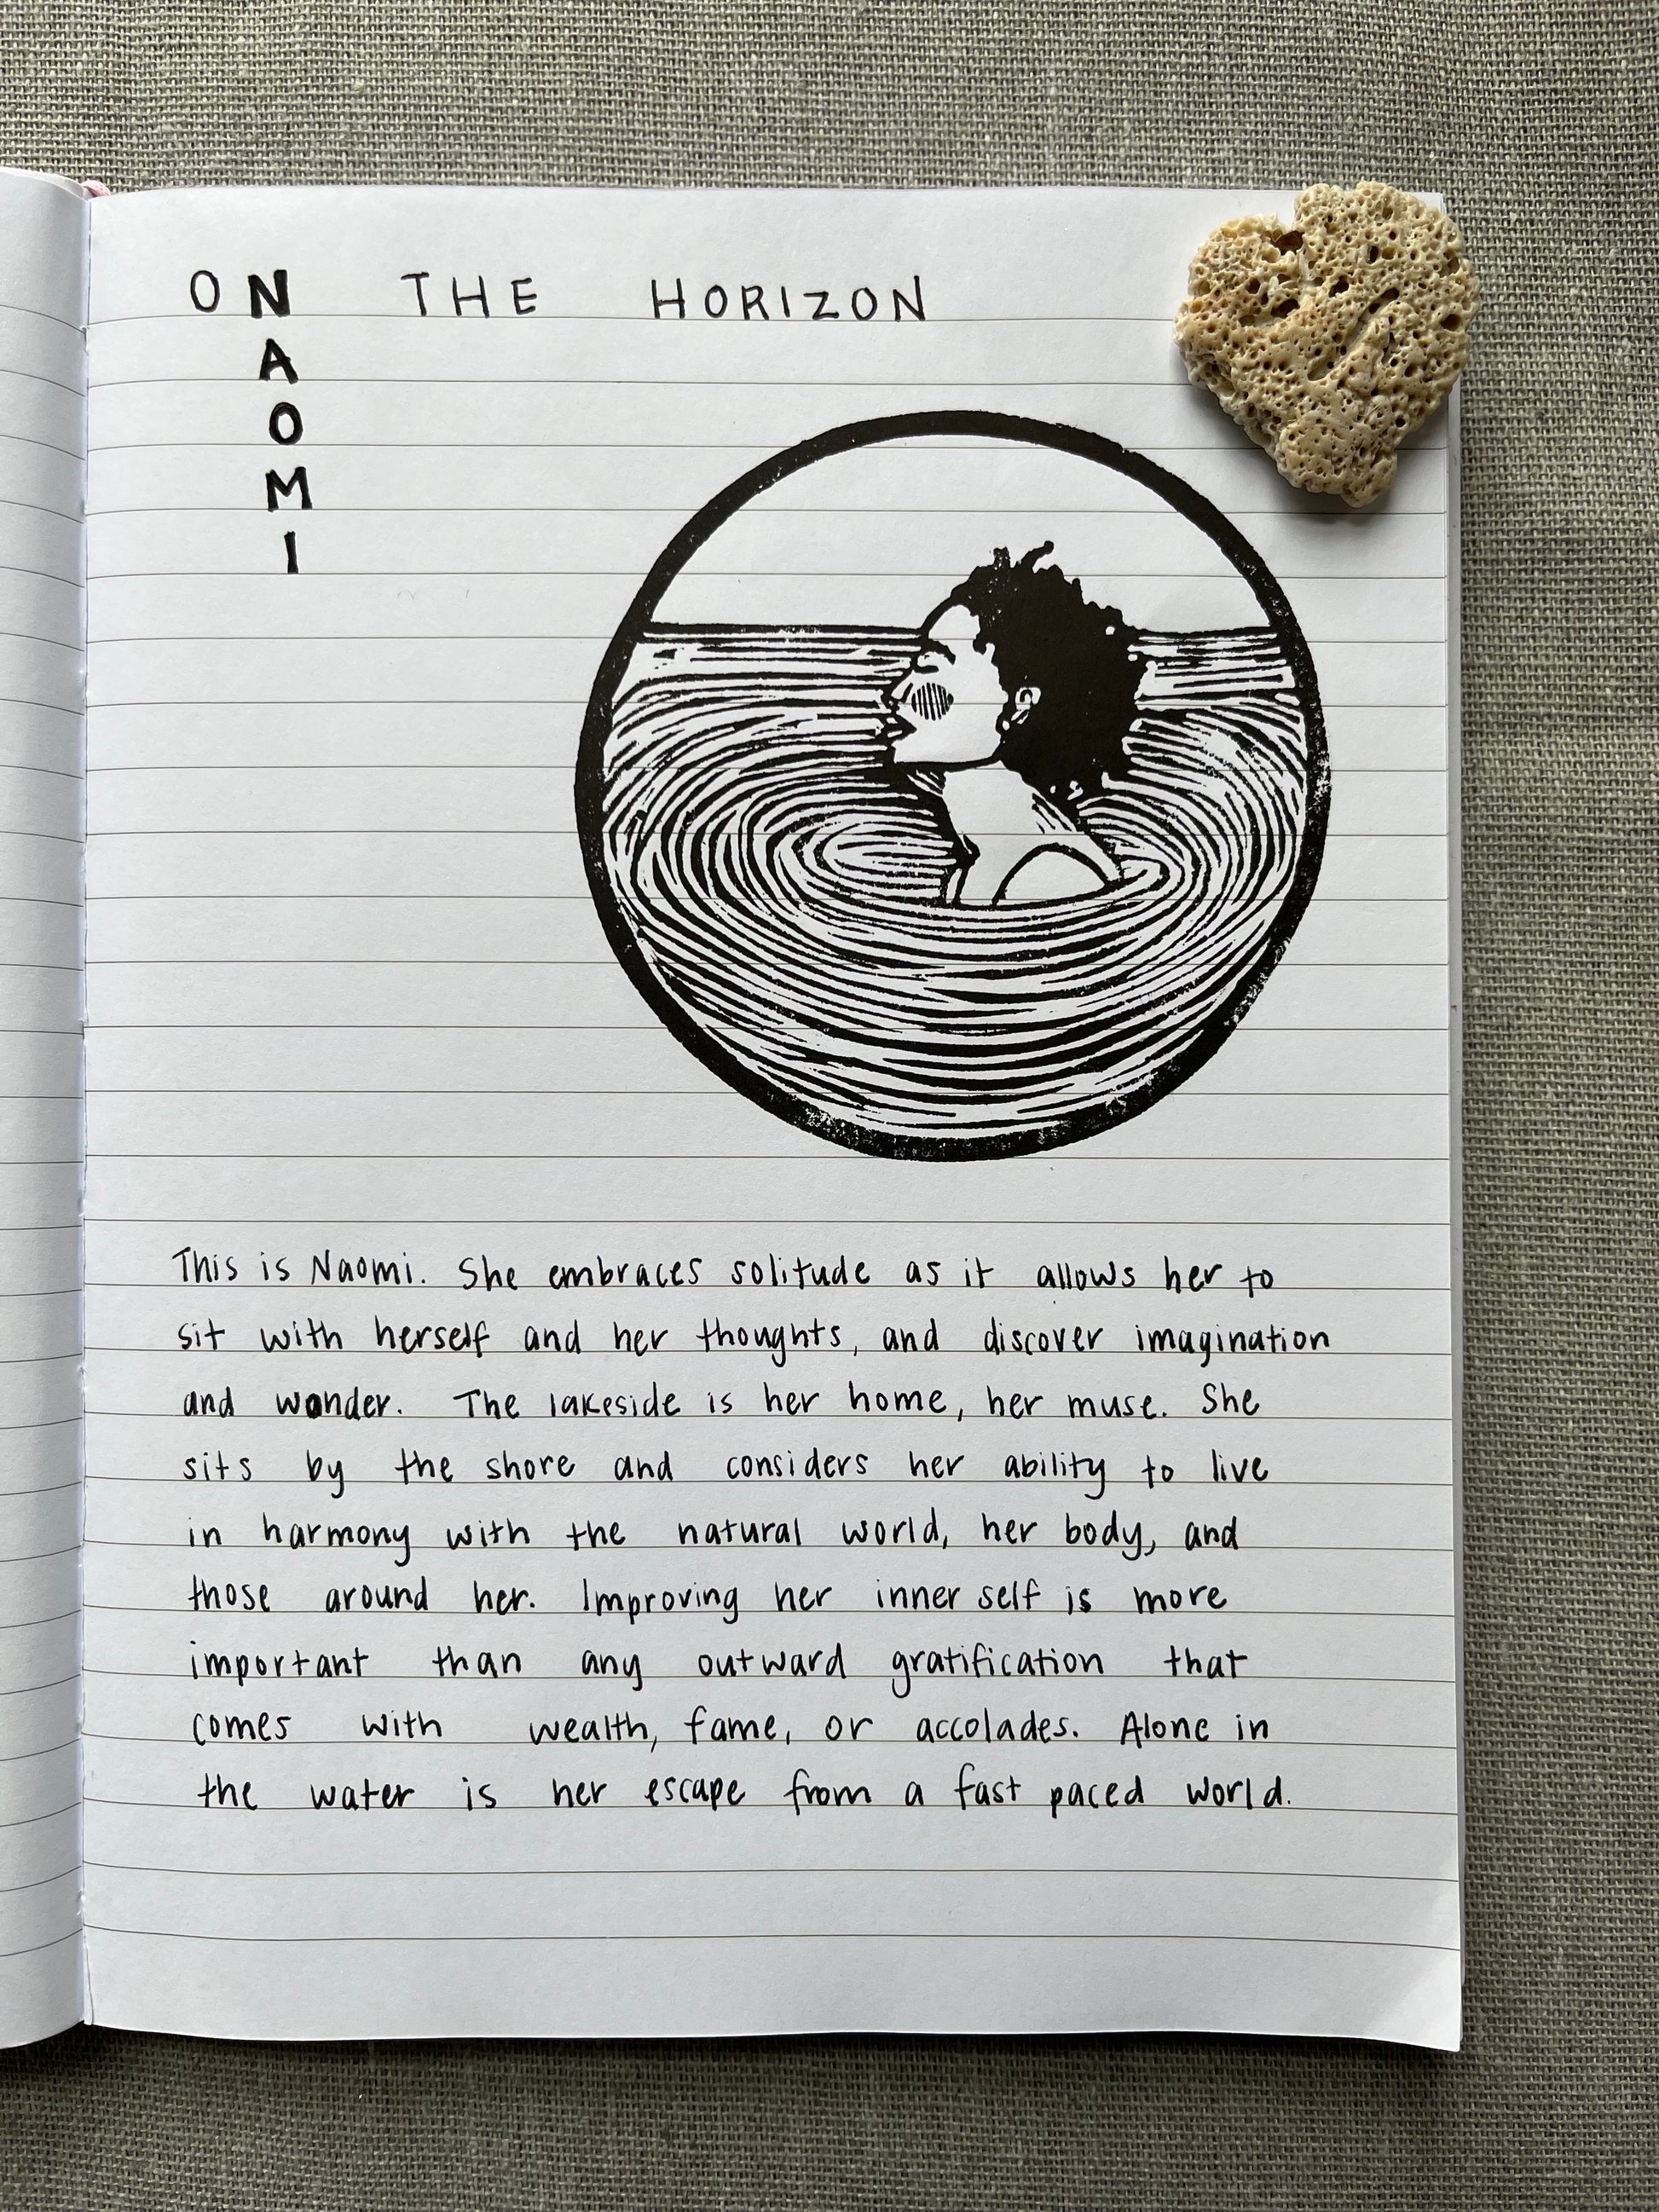 ON THE HORIZON
A
O
M
I
This is Naomi. She embraces solitude as it allows her to
sit with herself and her thoughts, and discover imagination
and wonder. The lakeside is her home, her muse. She
sits by the shore and considers her ability to live
in harmony with the natural world, her body, and
those around her. Improving her inner self is more
important than any outward gratification that
comes with wealth, fame, or accolades. Alone in
the water is her escape from a fast paced world.